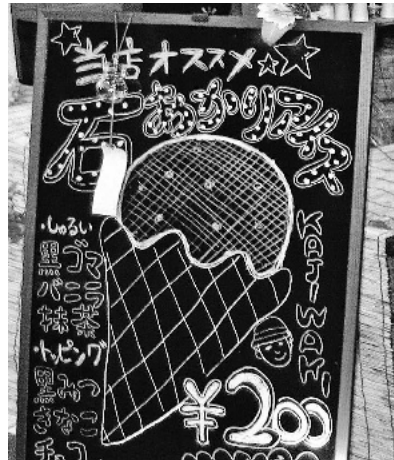 当店オススメ☆
石あかりアイス
・しゅるい
黒ゴマ
バニラ
抹茶
・トッピング
黒みつ
きなこ
チョコ
KAJIWAMI
¥200